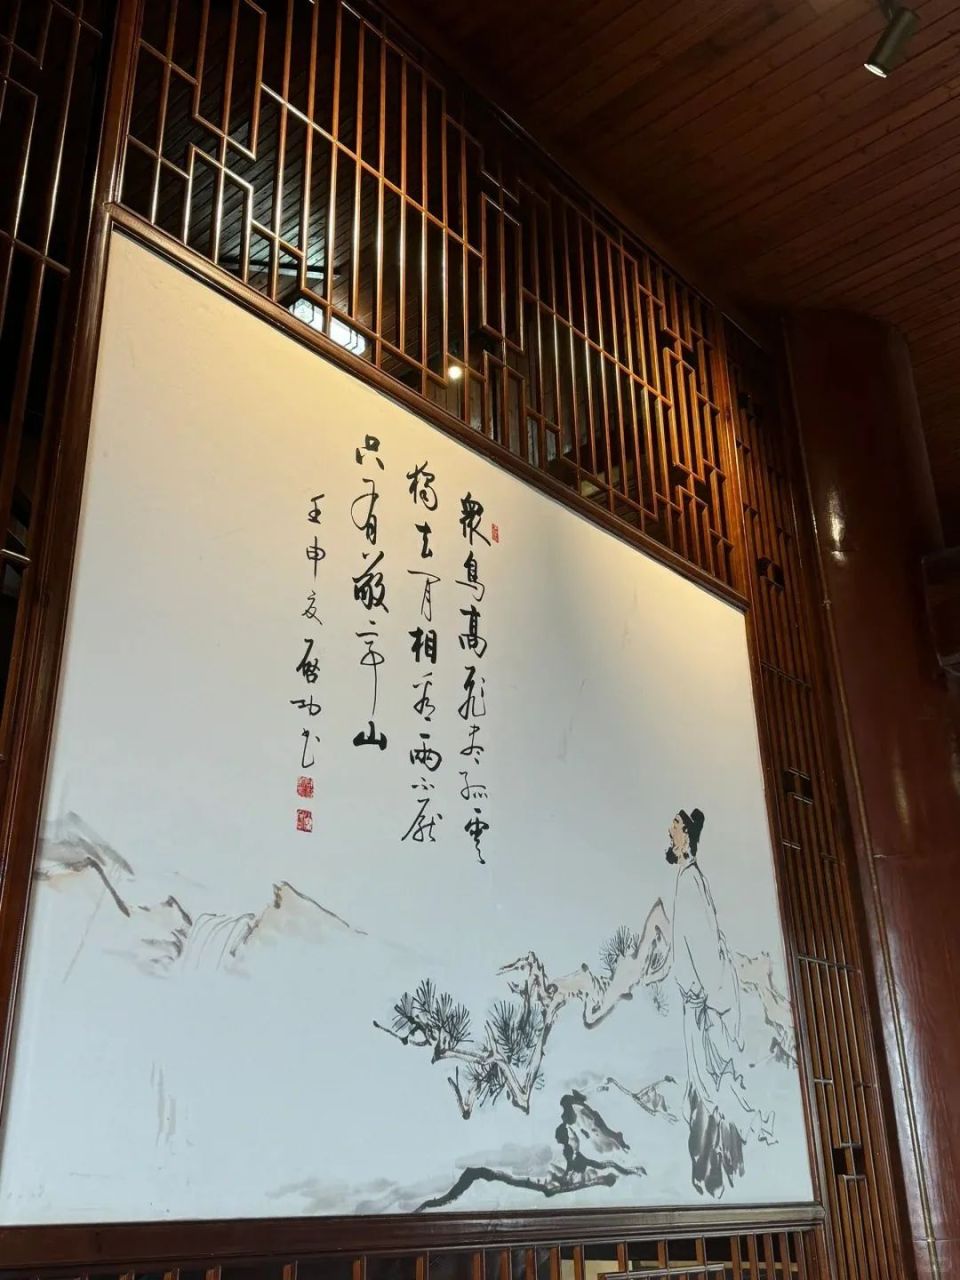 衆鳥高飛尽孤雲
獨去閒相看兩不厭
只有敬亭山
壬申夏啓功书